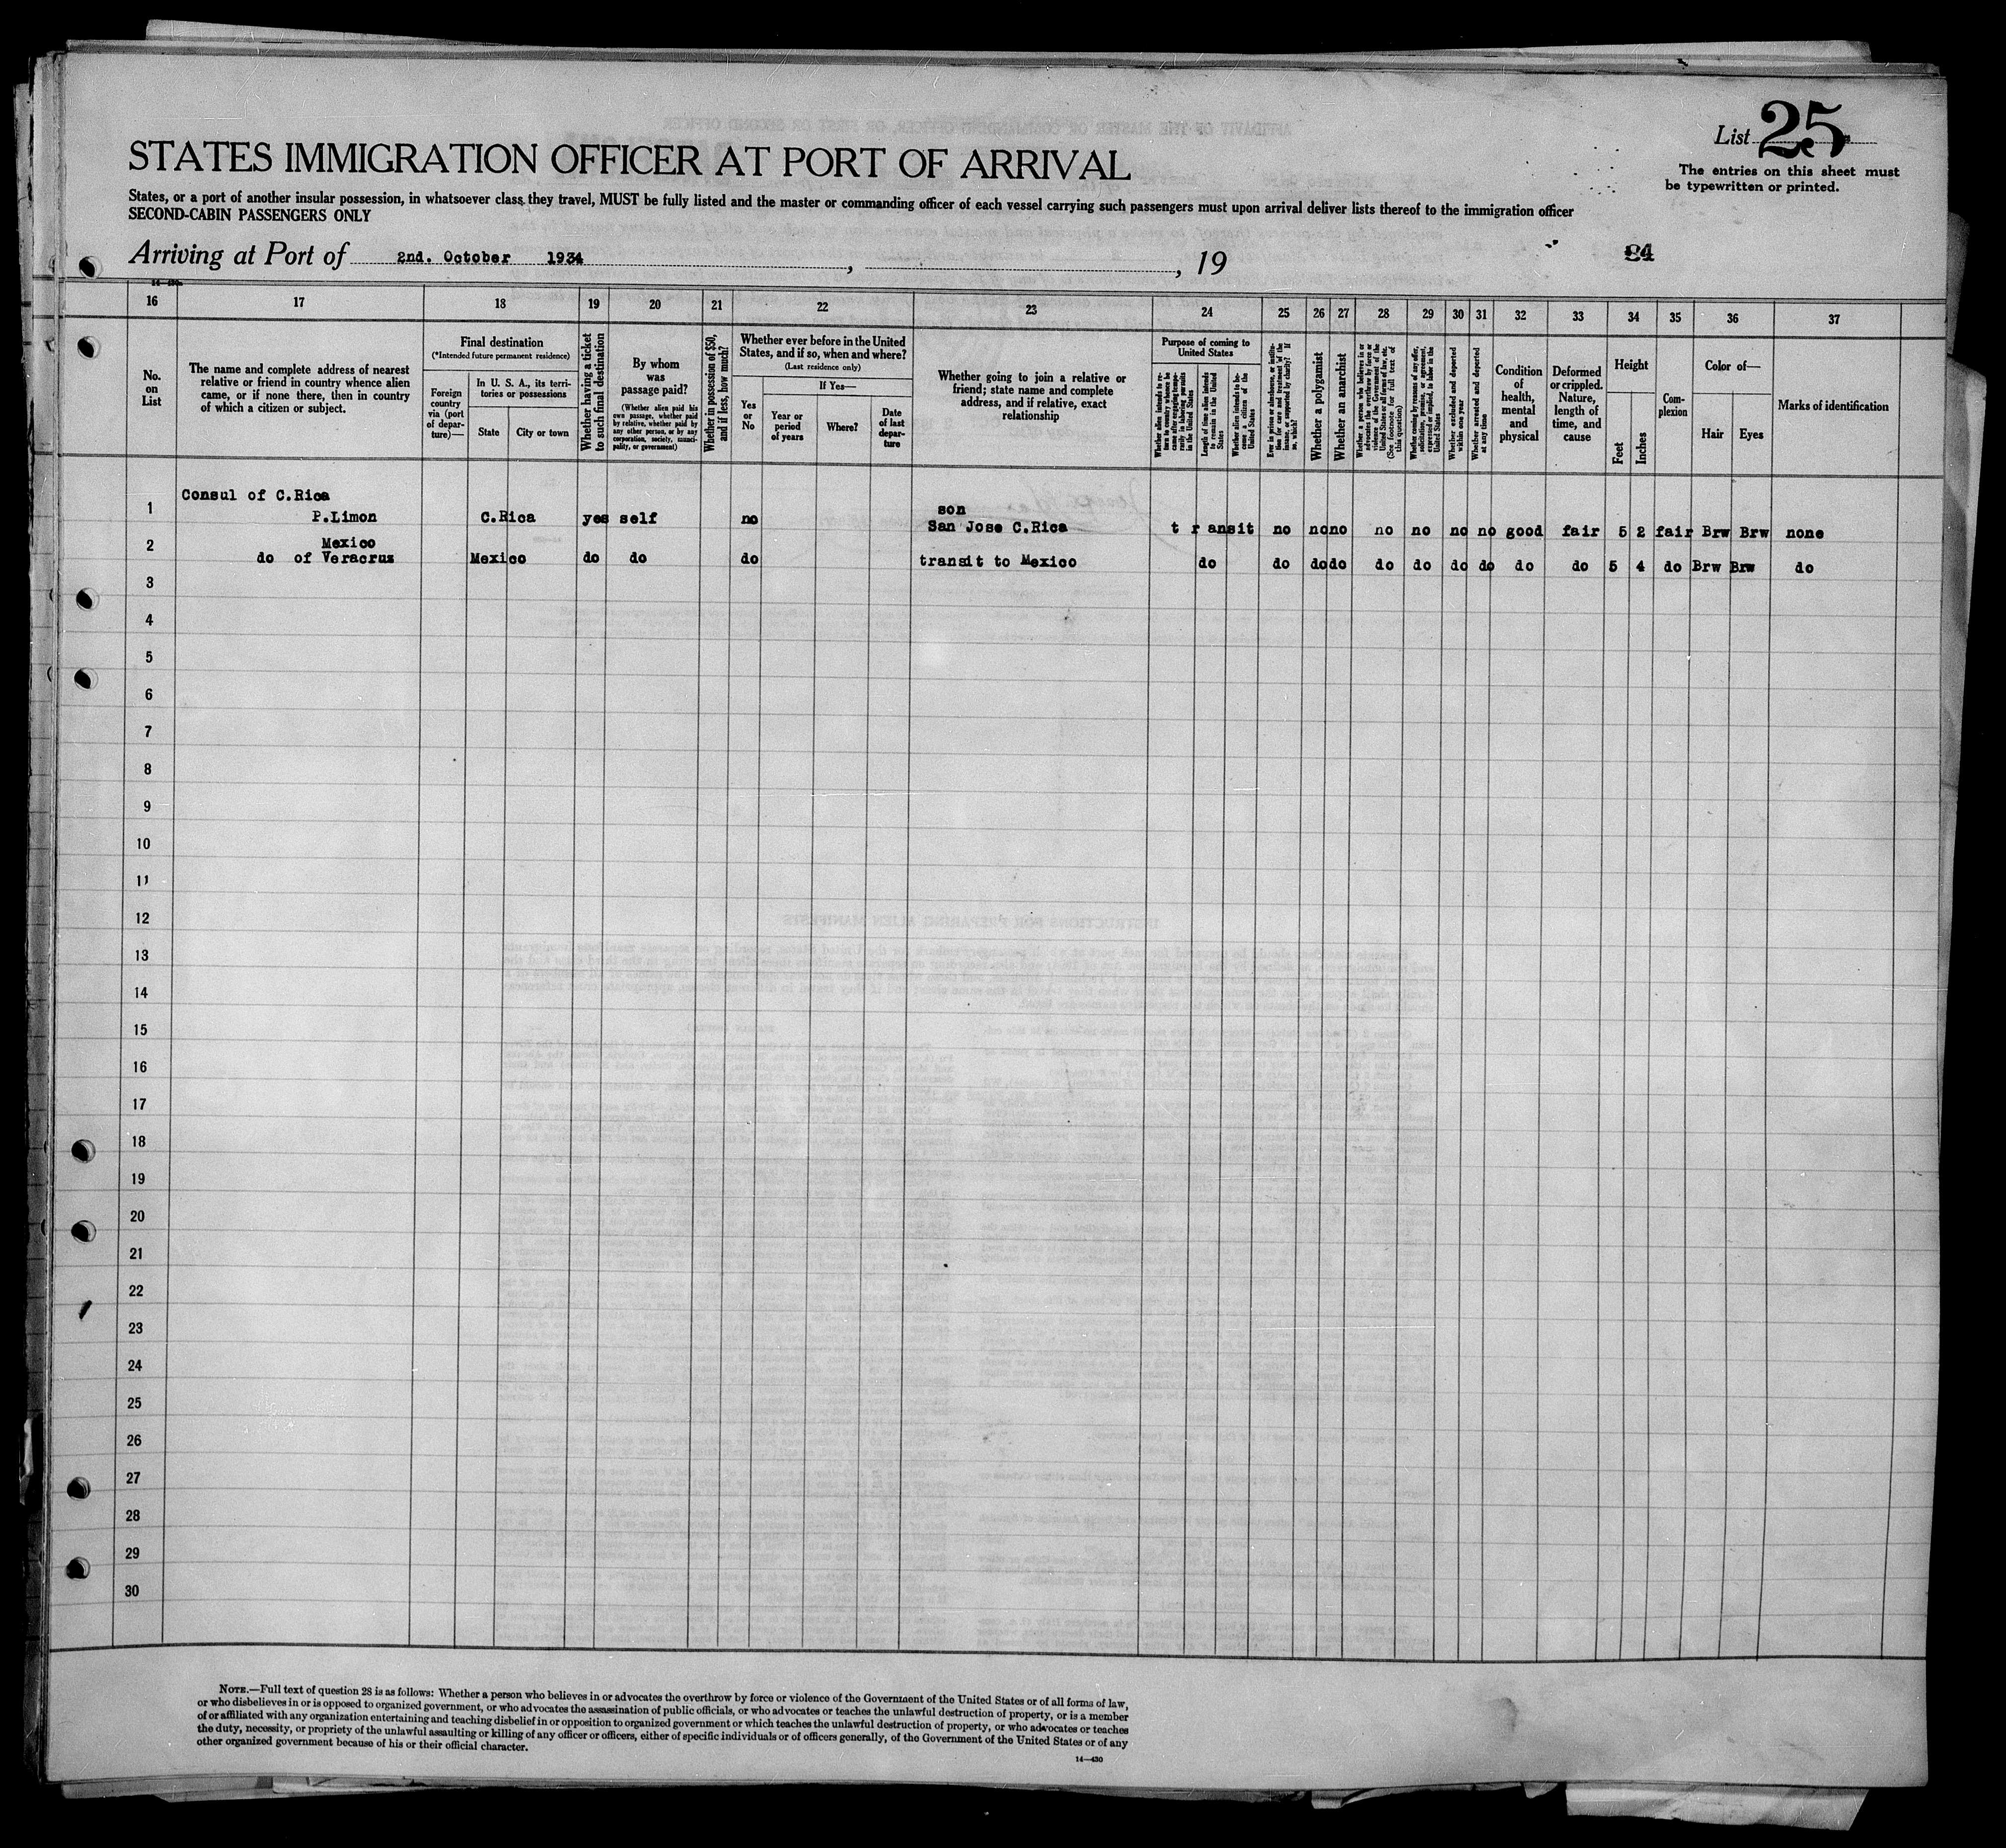 List 25
STATES IMMIGRATION OFFICER AT PORT OF ARRIVAL
The entries on this sheet must
be typewritten or printed.
States, or a port of another insular possession, in whatsoever class they travel, MUST be fully listed and the master or commanding officer of each vessel carrying such passengers must upon arrival deliver lists thereof to the immigration officer
SECOND-CABIN PASSENGERS ONLY
Arriving at Port of 2nd. October 1934, , 19
16 17 18 19 20 21 22 23 24 25 26 27 28 29 30 31 32 33 34 35 36 37
No.
on
List
The name and complete address of nearest
relative or friend in country whence alien
came, or if none there, then in country
of which a citizen or subject.
Final destination
(*Intended future permanent residence)
Foreign
country
via (port
of depar-
ture)—
In U. S. A., its terri-
tories or possessions
State
City or town
Whether having a ticket
to such final destination
By whom
was
passage paid?
(Whether alien paid his
own passage, whether paid
by relative, whether paid by
any other person, or by any
corporation, society, munici-
pality, or government)
Whether in possession of $50,
and if less, how much?
Whether ever before in the United
States, and if so, when and where?
(Last residence only)
Yes
or
No
If Yes—
Year or
period
of years
Where?
Date
of last
depar-
ture
Whether going to join a relative or
friend; state name and complete
address, and if relative, exact
relationship
Purpose of coming to
United States
Whether alien intends to re-
turn to country whence he
came after engaging tempo-
rarily in laboring pursuits
in the United States
Length of time alien intends
to remain in the United
States
Whether alien intends to be-
come a citizen of the
United States
Ever in prison or almshouse, or institu-
tion for care and treatment of the
insane, or supported by charity? If
so, which?
Whether a polygamist
Whether an anarchist
Whether a person who believes in or
advocates the overthrow by force or
violence of the Government of the
United States or all forms of law, etc.
(See footnote for full text of
this question)
Whether coming by reason of any offer,
solicitation, promise, or agreement,
expressed or implied, to labor in the
United States
Whether excluded and deported
within one year
Whether arrested and deported
at any time
Condition
of
health,
mental
and
physical
Deformed
or crippled.
Nature,
length of
time, and
cause
Height
Feet
Inches
Com-
plexion
Color of—
Hair
Eyes
Marks of identification
Consul of C.Rica
son
1 P.Limon C.Rica yes self no San Jose C.Rica transit no no no no no no no good fair 5 2 fair Brw Brw none
Mexico
2 do of Veracruz Mexico do do do transit to Mexico do do do do do do do do do do 5 4 do Brw Brw do
3
4
5
6
7
8
9
10
11
12
13
14
15
16
17
18
19
20
21
22
23
24
25
26
27
28
29
30
NOTE.—Full text of question 28 is as follows: Whether a person who believes in or advocates the overthrow by force or violence of the Government of the United States or of all forms of law,
or who disbelieves in or is opposed to organized government, or who advocates the assassination of public officials, or who advocates or teaches the unlawful destruction of property, or is a member
of or affiliated with any organization entertaining and teaching disbelief in or opposition to organized government or which teaches the unlawful destruction of property, or who advocates or teaches
the duty, necessity, or propriety of the unlawful assaulting or killing of any officer or officers, either of specific individuals or of officers generally, of the Government of the United States or of any
other organized government because of his or their official character.
14—430